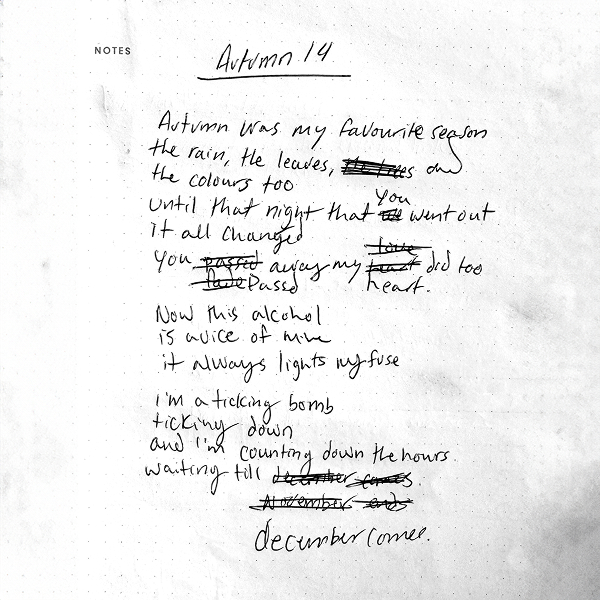 NOTES
Autumn 14
Autumn was my favourite season
the rain, the leaves, the trees and
the colours too
until that night that you went out
it all changed
You passed away my heart did too
fade Passed love heart.
Now this alcohol
is a vice of mine
it always lights my fuse
i'm a ticking bomb
ticking down
and i'm counting down the hours.
waiting till december comes.
November ends
december comes.